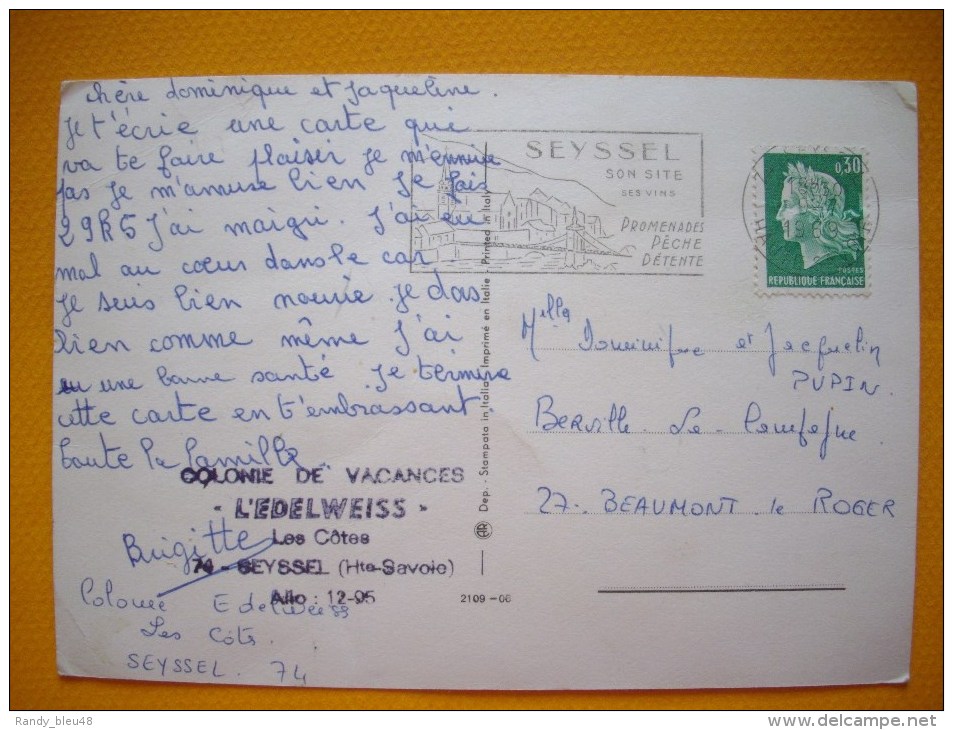 chère dominique et Jaqueline.
Je t'écrie une carte qui
va te faire plaisir je m'ennuie
pas je m'amuse bien Je fais
29K5 J'ai maigri. J'ai eu
mal au cœur dans le car.
Je suis bien nourie. je dors
bien comme même J'ai
eu une bonne santé. Je termine
cette carte en t'embrassant.
toute la famille
COLONIE DE VACANCES
- L'EDELWEISS -
Les Côtes
74 - SEYSSEL (Hte-Savoie)
Allo : 12-95
Brigitte
Colonie Edelweiss
Les Côts.
SEYSSEL. 74
SEYSSEL
SON SITE
SES VINS
PROMENADES
PÊCHE
DÉTENTE
1969
0,30
POSTES
REPUBLIQUE FRANÇAISE
Dep. - Stampata in Italia - Imprimé en Italie - Printed in Italy
AR
2109-06
Melles Dominique et Jacquelin
PUPIN.
Berville La Campagne
27. BEAUMONT le ROGER
Randy_bleu48
delcampe.net